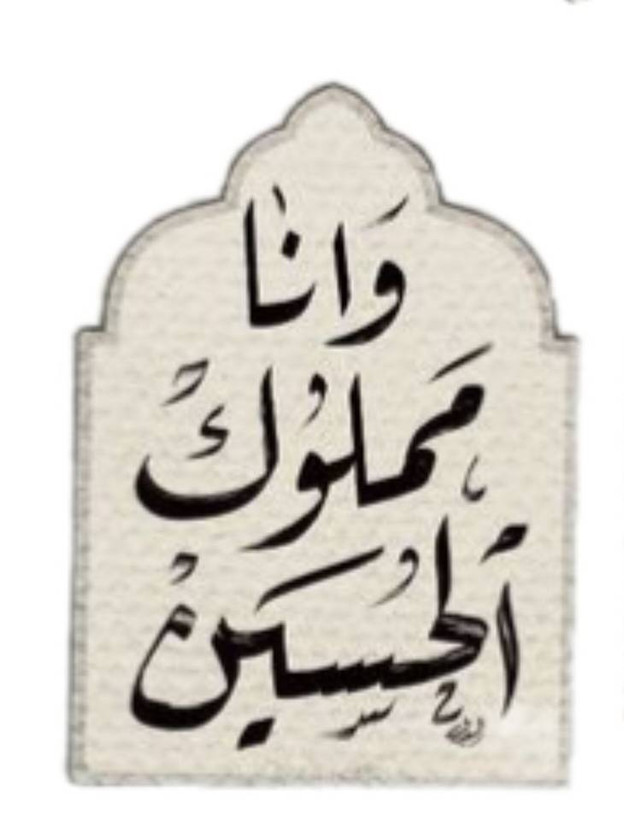 وَانا
مَملوُكْ
ألحُسَينْ